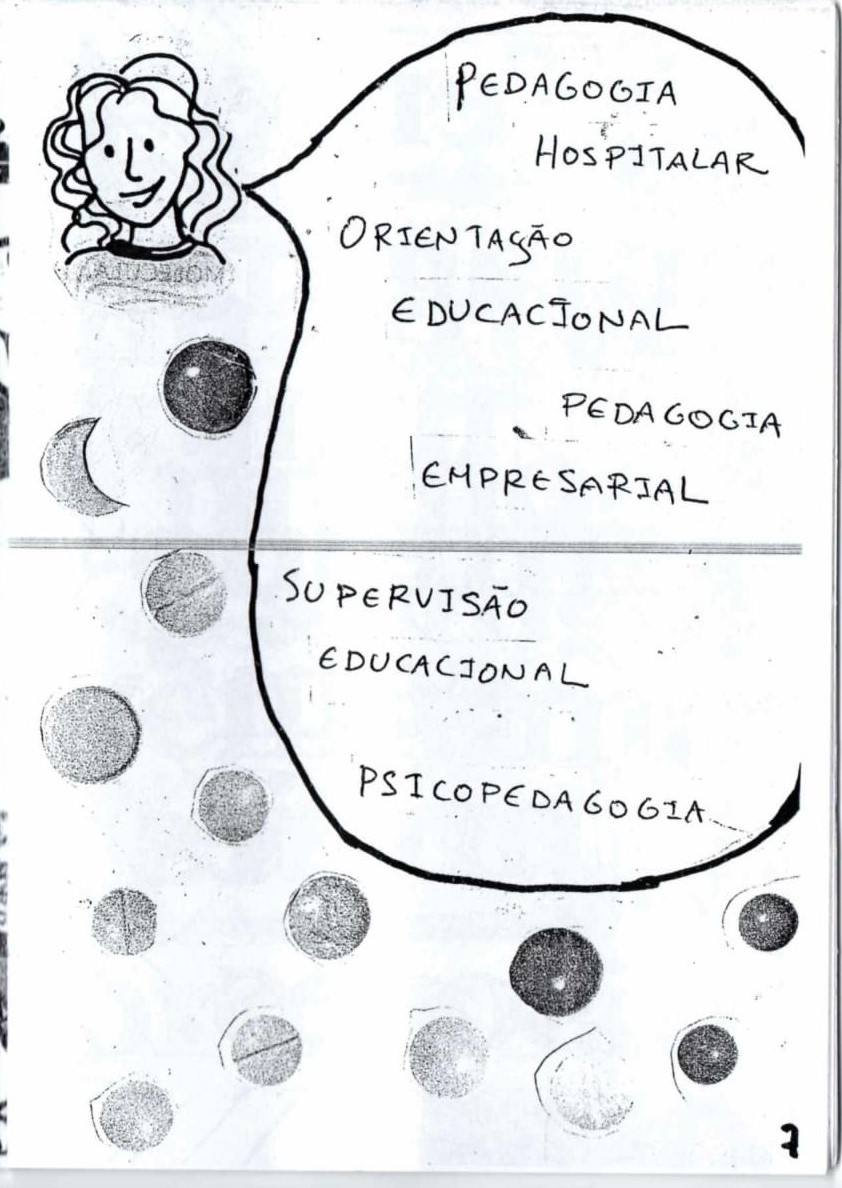 PEDAGOGIA
HOSPITALAR
ORIENTAÇÃO
EDUCACIONAL
PEDAGOGIA
EMPRESARIAL
SUPERVISÃO
EDUCACIONAL
PSICOPEDAGOGIA
7